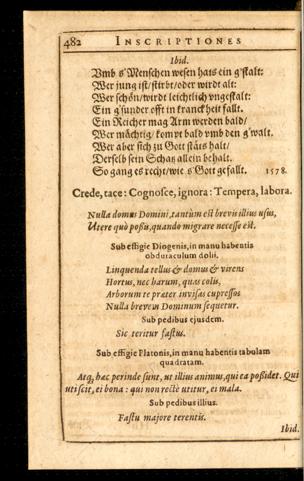 482 INSCRIPTIONES
Ibid.
Vmb s'Menschen wesen hats ein g'stalt:
Wer jung ist/stirbt/oder wirdt alt:
Wer schön/wirdt leichtlich vngestalt:
Ein g'sunder offt in kranckheit fallt.
Ein Reicher mag Arm werden bald/
Wer mächtig/kompt bald vmb den g'walt.
Wer aber sich zu Gott stäts halt/
Derselb sein Schatz allein behalt.
So gang es recht/wie s'Gott gefallt. 1578.
Crede, tace: Cognosce, ignora: Tempera, labora.
Nulla domus Domini, tantùm est brevis illius usus,
Utere quò possis, quando migrare necesse est.
Sub effigie Diogenis, in manu habentis
obduraculum dolii.
Linquenda tellus & domus & virens
Hortus, nec harum, quas colis,
Arborum te præter invisas cupressos
Nulla brevem Dominum sequetur.
Sub pedibus ejusdem.
Sic teritur fastus.
Sub effigie Platonis, in manu habentis tabulam
quadratam.
Atq; hæc perinde sunt, ut illius animus, qui ea possidet. Qui
uti scit, ei bona: qui non rectè utitur, ei mala.
Sub pedibus illius.
Fastu majore terentis.
Ibid.